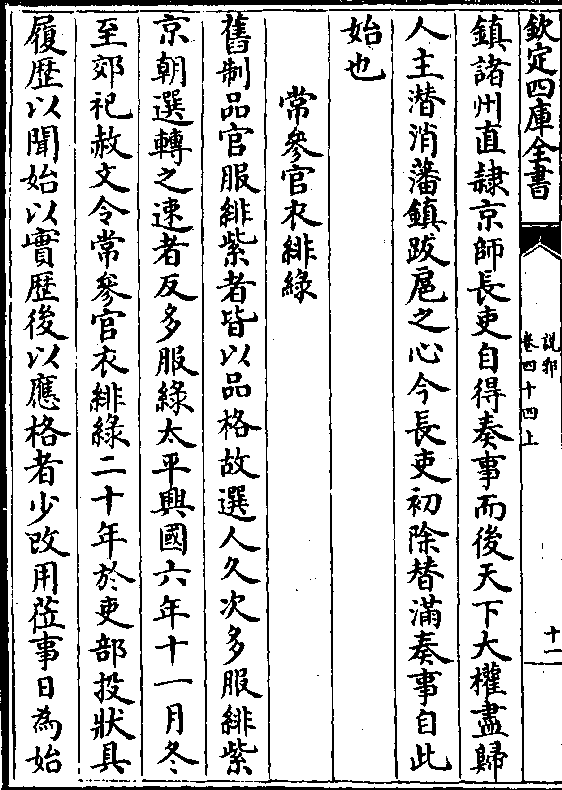 欽定四庫全書
説郛
卷四十四上
十一
鎮諸州直隷京師長吏自得奏事而後天下大權盡歸
人主潜消藩鎮跋扈之心今長吏初除替滿奏事自此
始也
常參官衣緋綠
舊制品官服緋紫者皆以品格故選人久次多服緋紫
京朝選轉之速者反多服綠太平興國六年十一月冬
至郊祀赦文令常參官衣緋綠二十年於吏部投狀具
履歴以聞始以實歴後以應格者少改用蒞事日為始